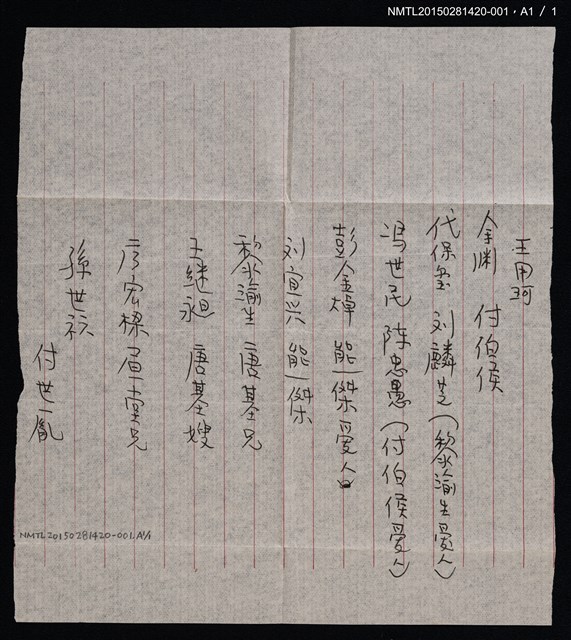 NMTL20150281420-001，A1 / 1
王用珂
余渊 付伯侯
代保 刘麟芝（黎渝生爱人）
冯世民 陈忠愚（付伯侯爱人）
彭金焯 能傑爱人
刘宜兴 能傑
黎渝生 唐基兄
王继昶 唐基嫂
宏樑
孫世
付世胤
NMTL20150281420-001.A1/1